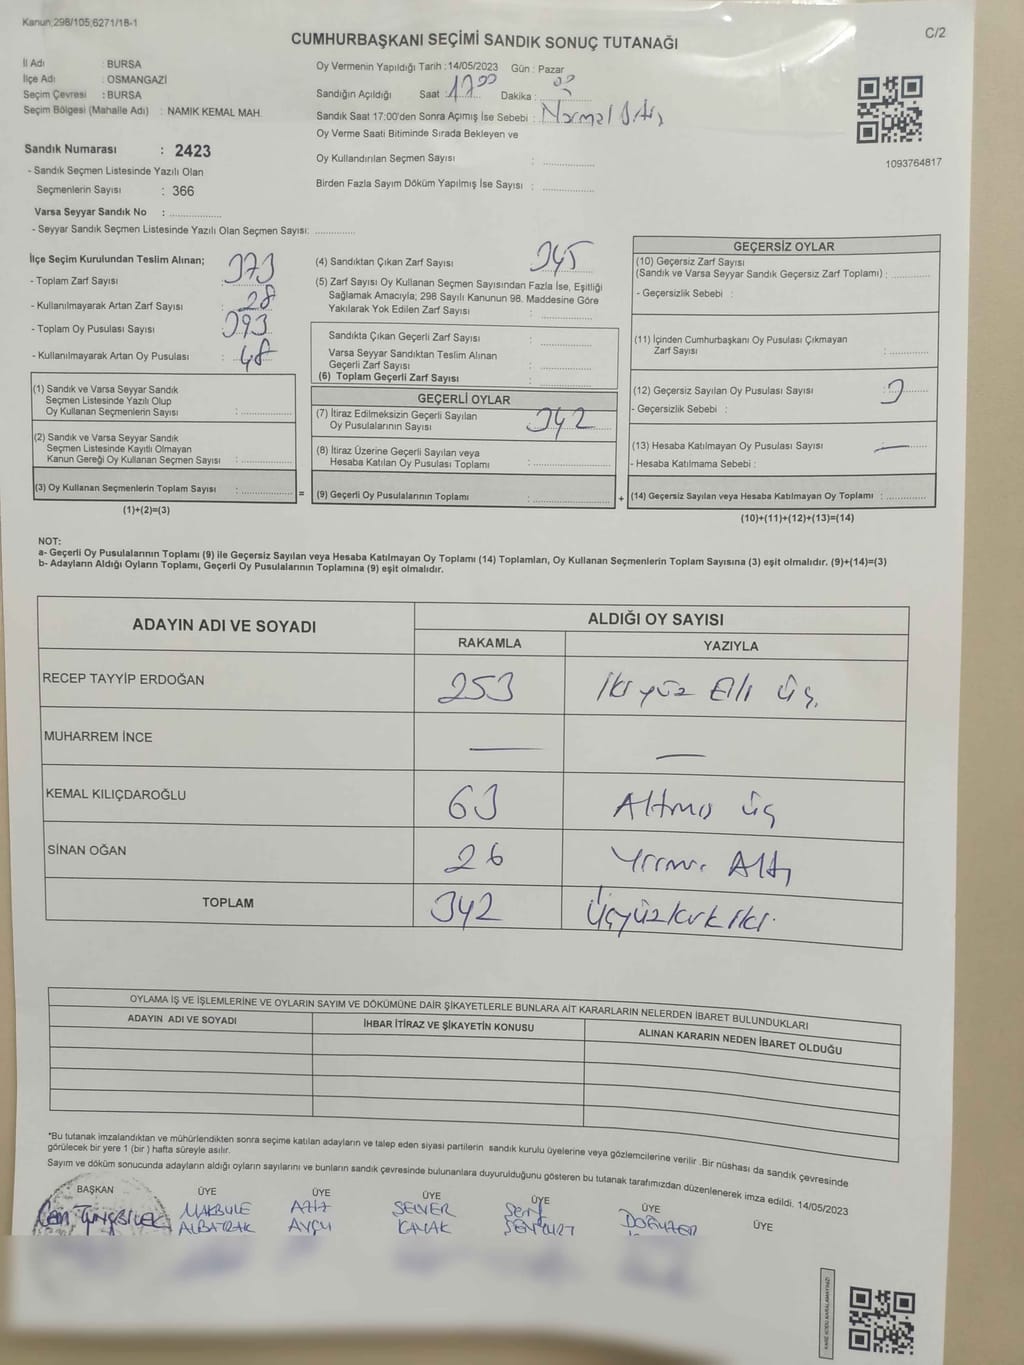 Kanun;298/105;6271/18-1
C/2
CUMHURBAŞKANI SEÇİMİ SANDIK SONUÇ TUTANAĞI
İl Adı : BURSA
İlçe Adı : OSMANGAZİ
Seçim Çevresi : BURSA
Seçim Bölgesi (Mahalle Adı) : NAMIK KEMAL MAH.
Sandık Numarası : 2423
- Sandık Seçmen Listesinde Yazılı Olan
Seçmenlerin Sayısı : 366
Varsa Seyyar Sandık No : ..............
- Seyyar Sandık Seçmen Listesinde Yazılı Olan Seçmen Sayısı: ............
Oy Vermenin Yapıldığı Tarih : 14/05/2023 Gün : Pazar
Sandığın Açıldığı Saat : 17 00 Dakika : 00
Sandık Saat 17:00'den Sonra Açımış İse Sebebi : Normal
Oy Verme Saati Bitiminde Sırada Bekleyen ve
Oy Kullandırılan Seçmen Sayısı : ..............
Birden Fazla Sayım Döküm Yapılmış İse Sayısı : ..............
1093764817
İlçe Seçim Kurulundan Teslim Alınan;
- Toplam Zarf Sayısı : 373
- Kullanılmayarak Artan Zarf Sayısı : 28
- Toplam Oy Pusulası Sayısı : 393
- Kullanılmayarak Artan Oy Pusulası : 48
(1) Sandık ve Varsa Seyyar Sandık
Seçmen Listesinde Yazılı Olup
Oy Kullanan Seçmenlerin Sayısı : ..............
(2) Sandık ve Varsa Seyyar Sandık
Seçmen Listesinde Kayıtlı Olmayan
Kanun Gereği Oy Kullanan Seçmen Sayısı : ..............
(3) Oy Kullanan Seçmenlerin Toplam Sayısı : .............. =
(1)+(2)=(3)
(4) Sandıktan Çıkan Zarf Sayısı : 345
(5) Zarf Sayısı Oy Kullanan Seçmen Sayısından Fazla İse, Eşitliği
Sağlamak Amacıyla; 298 Sayılı Kanunun 98. Maddesine Göre
Yakılarak Yok Edilen Zarf Sayısı : ..............
Sandıkta Çıkan Geçerli Zarf Sayısı : ..............
Varsa Seyyar Sandıktan Teslim Alınan
Geçerli Zarf Sayısı : ..............
(6) Toplam Geçerli Zarf Sayısı : ..............
GEÇERLİ OYLAR
(7) İtiraz Edilmeksizin Geçerli Sayılan
Oy Pusulalarının Sayısı : 342
(8) İtiraz Üzerine Geçerli Sayılan veya
Hesaba Katılan Oy Pusulası Toplamı : ..............
(9) Geçerli Oy Pusulalarının Toplamı : .............. +
GEÇERSİZ OYLAR
(10) Geçersiz Zarf Sayısı
(Sandık ve Varsa Seyyar Sandık Geçersiz Zarf Toplamı) : ............
- Geçersizlik Sebebi :
(11) İçinden Cumhurbaşkanı Oy Pusulası Çıkmayan
Zarf Sayısı : ............
(12) Geçersiz Sayılan Oy Pusulası Sayısı : 3
- Geçersizlik Sebebi :
(13) Hesaba Katılmayan Oy Pusulası Sayısı : —
- Hesaba Katılmama Sebebi :
(14) Geçersiz Sayılan veya Hesaba Katılmayan Oy Toplamı : ............
(10)+(11)+(12)+(13)=(14)
NOT:
a- Geçerli Oy Pusulalarının Toplamı (9) ile Geçersiz Sayılan veya Hesaba Katılmayan Oy Toplamı (14) Toplamları, Oy Kullanan Seçmenlerin Toplam Sayısına (3) eşit olmalıdır. (9)+(14)=(3)
b- Adayların Aldığı Oyların Toplamı, Geçerli Oy Pusulalarının Toplamına (9) eşit olmalıdır.
ADAYIN ADI VE SOYADI ALDIĞI OY SAYISI
RAKAMLA YAZIYLA
RECEP TAYYİP ERDOĞAN 253 İki yüz Elli üç
MUHARREM İNCE — —
KEMAL KILIÇDAROĞLU 63 Altmış üç
SİNAN OĞAN 26 Yirmi Altı
TOPLAM 342 Üçyüzkırk iki
OYLAMA İŞ VE İŞLEMLERİNE VE OYLARIN SAYIM VE DÖKÜMÜNE DAİR ŞİKAYETLERLE BUNLARA AİT KARARLARIN NELERDEN İBARET BULUNDUKLARI
ADAYIN ADI VE SOYADI İHBAR İTİRAZ VE ŞİKAYETİN KONUSU ALINAN KARARIN NEDEN İBARET OLDUĞU
*Bu tutanak imzalandıktan ve mühürlendikten sonra seçime katılan adayların ve talep eden siyasi partilerin sandık kurulu üyelerine veya gözlemcilerine verilir .Bir nüshası da sandık çevresinde
görülecek bir yere 1 (bir ) hafta süreyle asılır.
Sayım ve döküm sonucunda adayların aldığı oyların sayılarını ve bunların sandık çevresinde bulunanlara duyurulduğunu gösteren bu tutanak tarafımızdan düzenlenerek imza edildi. 14/05/2023
BAŞKAN ÜYE ÜYE ÜYE ÜYE ÜYE ÜYE
MAKBULE AZİZ SEVER
ALBAYRAK AVCU KAVAK